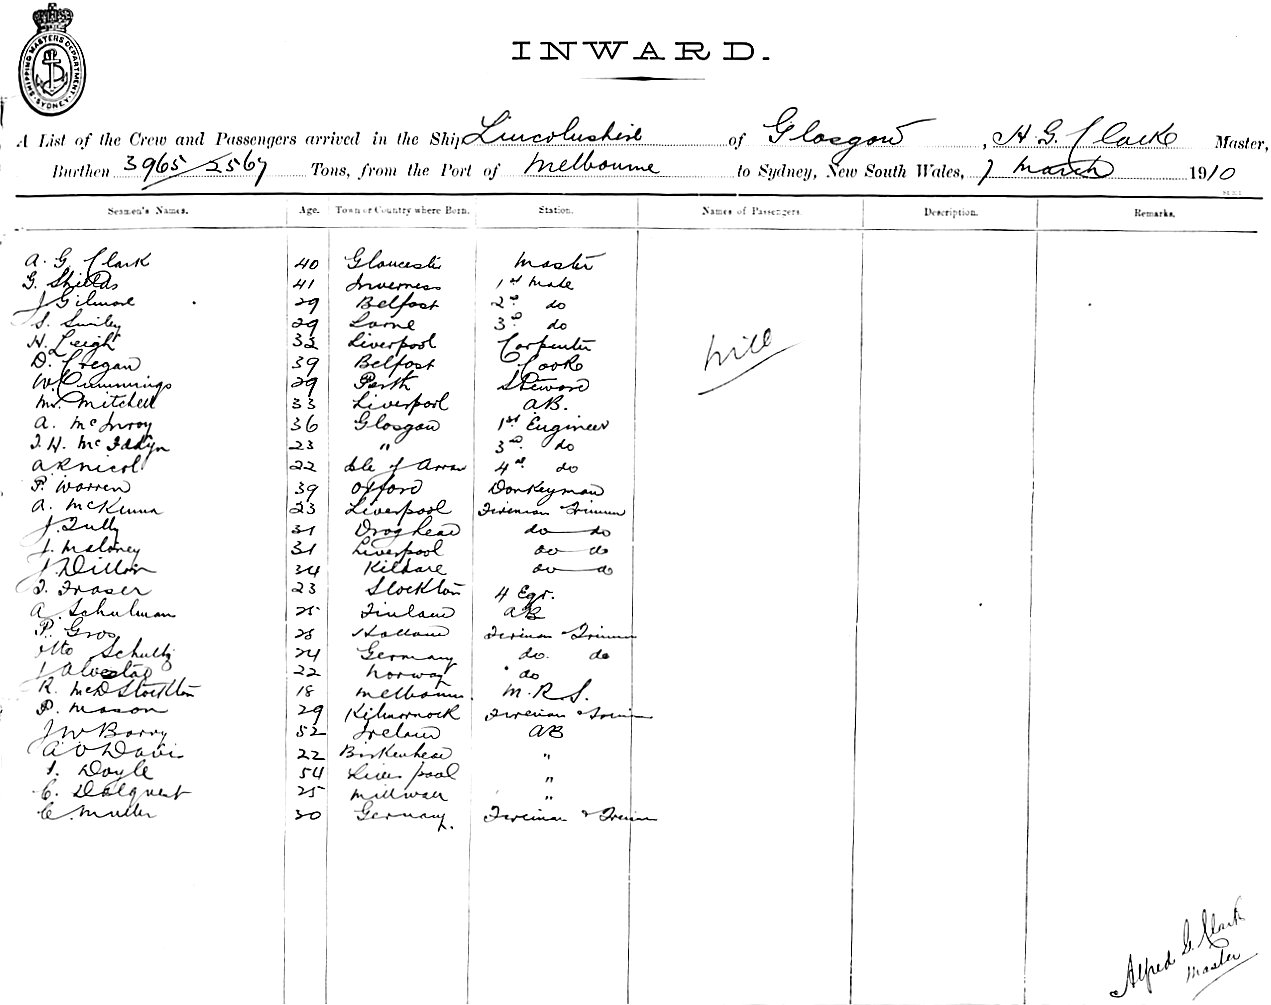 SHIPPING MASTERS DEPARTMENT · SYDNEY ·
INWARD.
A List of the Crew and Passengers arrived in the Ship Lincolnshire of Glasgow, H G. Clark Master,
Burthen 3965/2567 Tons, from the Port of Melbourne to Sydney, New South Wales, 7 March 1910
Seamen's Names. Age. Town or Country where Born. Station. Names of Passengers. Description. Remarks.
A. G. Clark 40 Gloucester Master
G. Shields 41 Inverness 1st Mate
J Gilmore 29 Belfast 2nd do
S. Smiley 29 Larne 3rd do
H. Leigh 32 Liverpool Carpenter
nill
D. Cregan 39 Belfast Cook
W. Cummings 29 Perth Steward
Mitchell 33 Liverpool AB.
A. McInroy 36 Glasgow 1st Engineer
J. H. McFadyn 23 " 3rd do
A R Nicol 22 Isle of Arran 4th do
P. Warren 39 Oxford Donkeyman
A. McKenna 23 Liverpool Fireman Trimmer
J. Tully 31 Drogheda do do
J. Maloney 31 Liverpool do do
J. Dillon 34 Kildare do do
T. Fraser 23 Stockton 4 Egr.
A. Schulman 25 Finland AB
P. Gros 28 Holland Fireman & Trimmer
Otto Schultz 24 Germany do. do
22 Norway do
R. McD Stockton 18 Melbourne M.R.S.
P. Mason 29 Kilmarnock Fireman & Trimmer
J W Barry 52 Ireland AB
A O Davis 22 Birkenhead "
J. Doyle 54 Liverpool "
C. Dalquest 25 Millwall "
C. Muller 30 Germany. Fireman & Trimmer
Alfred G. Clark
Master